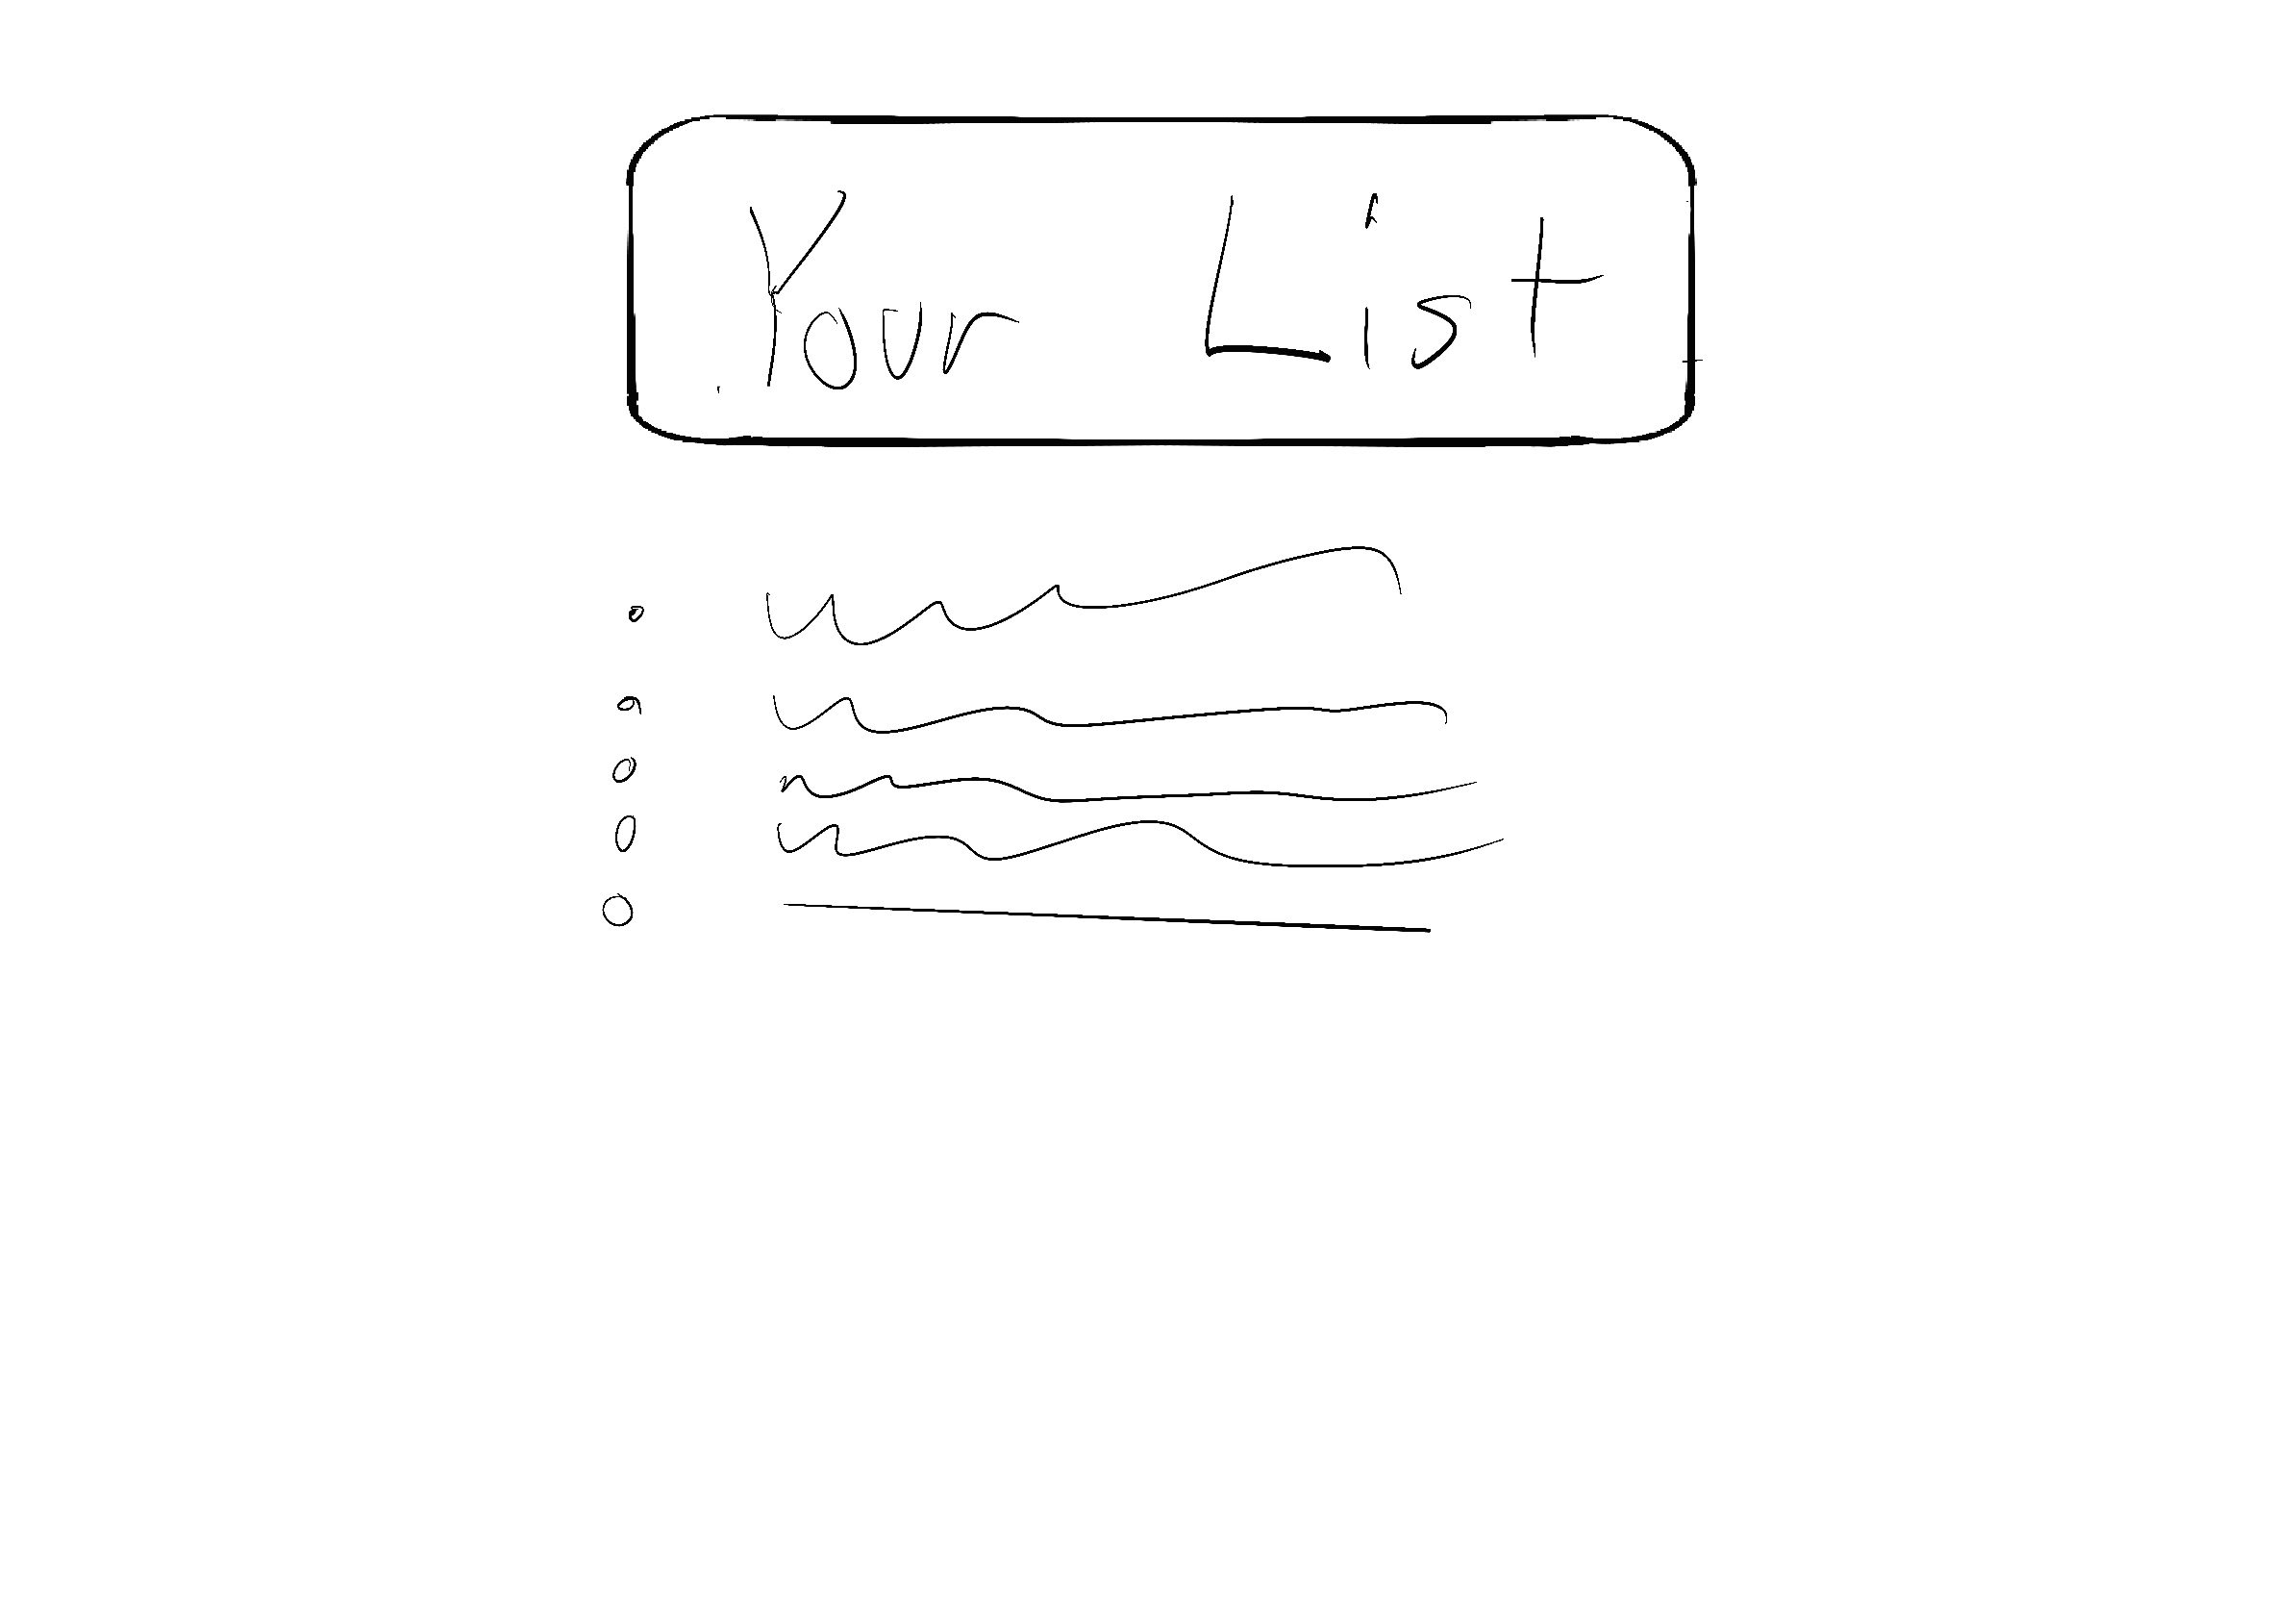 Your List